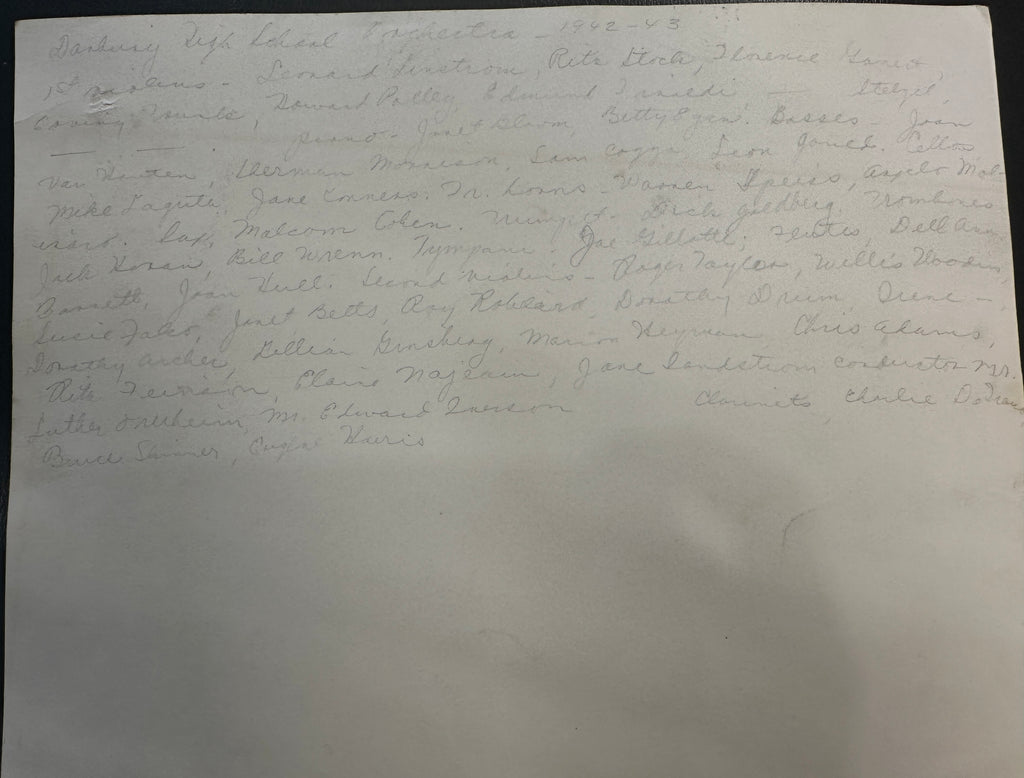 Danbury High School Orchestra - 1942-43
1st violins - Leonard Linstrom, Rita Stock, Florence
Howard Polley, Edmund - Stelzel,
- - piano - Janet Bloom, Betty Egan. Basses - Joan
Van Houten, Sherman Morrison, Sam Leon Cellos
Mike Jane Conners. Fr. horns - Warren Speiss, Angelo
Sax, Malcom Cohen. Trumpet - Dick Goldberg Trombones
Jack Horan, Bill Wrenn. Tympani - Joe Flutes, Dell Ann
Barnett, Joan Hull. Second violins - Roger Taylor, Willis
Susie Janet Betts, Ray Robilard, Dorothy Drum, Irene -,
Dorothy Archer, Lillian Ginsberg, Marion Heyman, Chris Adams,
Rita Elaine Najeam, Jane Landstrom conductor Mr.
Luther Mr. Edward Iverson Clarinets, Charlie
Bruce Skinner, Eugene Harris